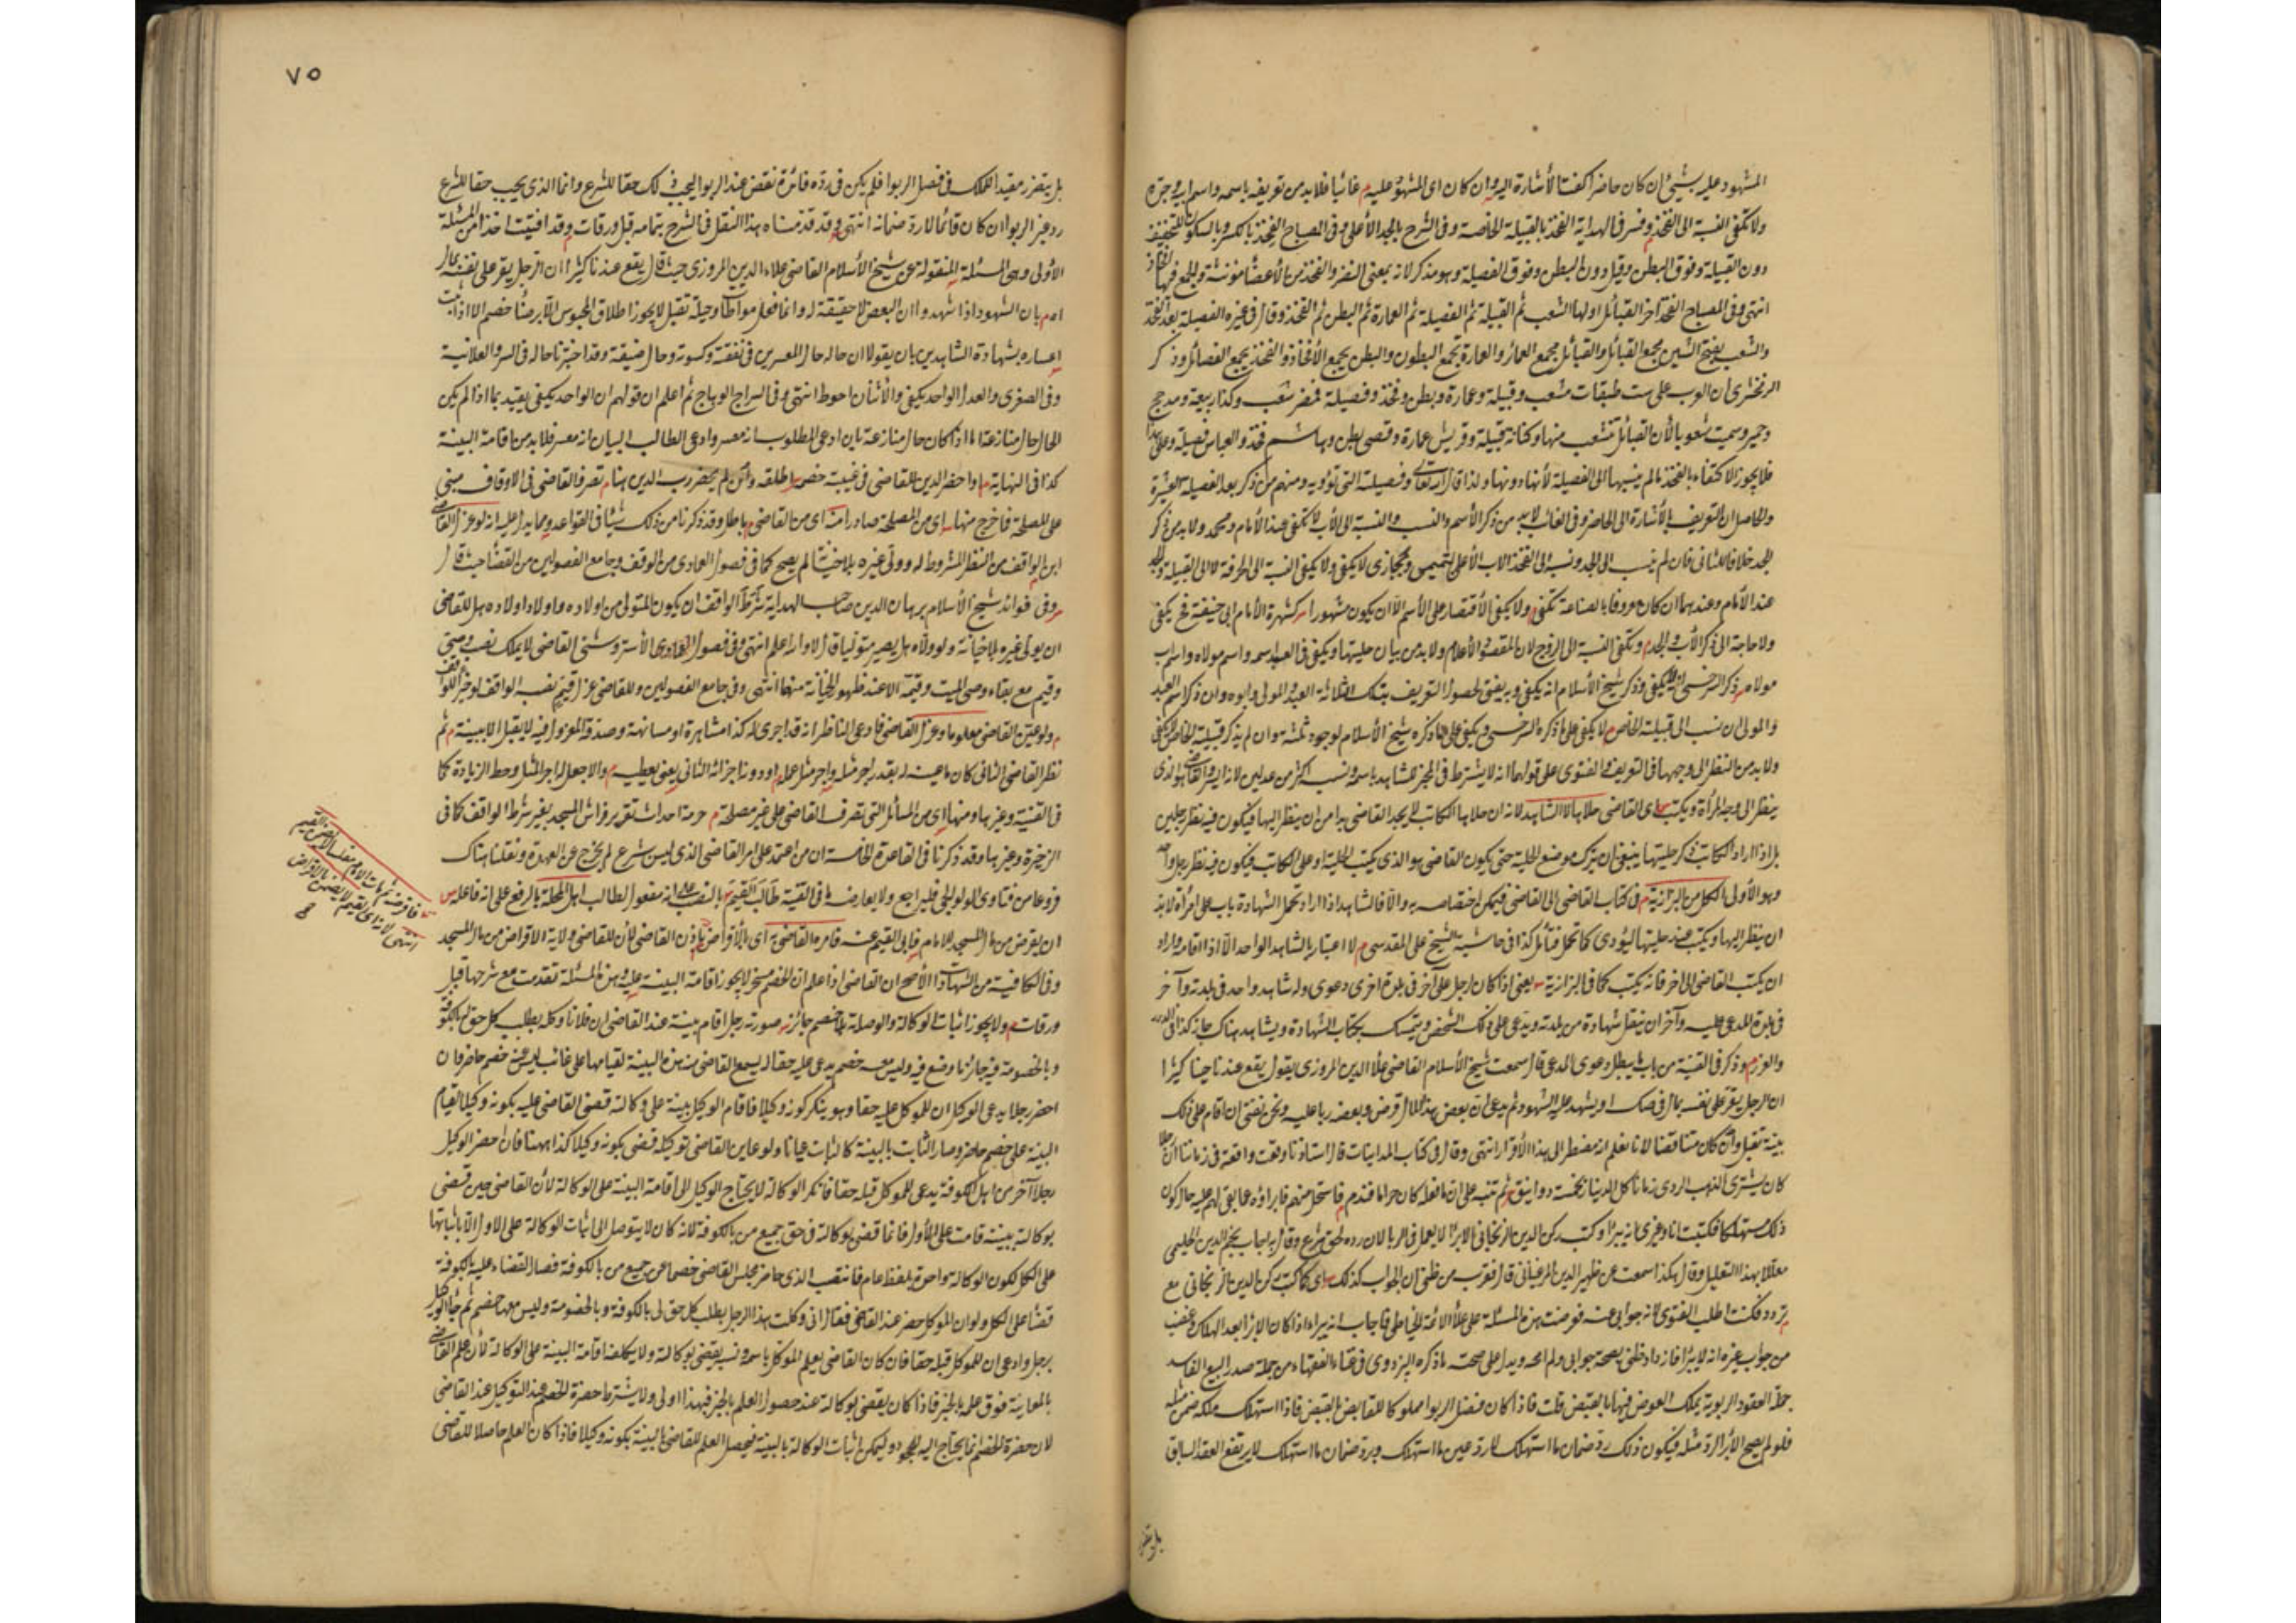 المشهود عليه بشيئ ان كان حاضرا كفت الأشارة اليه وان كان اى المشهود عليه م غائبا فلابد من تعريفه باسمه واسم ابيه وجده
ولا تكفى النسبة الى الفخذ وفسر فى الهداية الفخذ بالقبيلة الخاصة وفى الشرح بالجد الأعلى وفى المصباح الفخذ بالكسر وبالسكون للتخفيف
دون القبيلة وفوق البطن وقيل دون البطن وفوق الفصيلة وهو مذكر لانه بمعنى النفر والفخذ من الأعضا مؤنثة والجمع فيهما افخاذ
انتهى وفى المصباح الفخذ اخر القبائل اولها الشعب ثم القبيلة ثم الفصيلة ثم العمارة ثم البطن ثم الفخذ وقال فى غيره الفصيلة بعد الفخذ
والشعب بفتح الشين مجمع القبائل والقبائل مجمع العمائر والعمارة تجمع البطون والبطن يجمع الأفخاذ والفخذ يجمع الفصائل وذكر
الزمخشرى ان العرب على ست طبقات شعب وقبيلة وعمارة وبطن وفخذ وفصيلة فمضر شعب وكذا ربيعة ومذحج
وحمير وسميت شعوبا لأن القبائل تتشعب منها وكنانة قبيلة وقريش عمارة وقصى بطن وهاشم فخذ والعباس فصيلة وعلى هذا
فلا يجوز الاكتفاء بالفخذ ما لم ينسبها الى الفصيلة لأنها دونها ولذا قال الله تعالى وفصيلته التى تؤويه ومنهم من ذكر بعد الفصيلة العشيرة
والحاصل ان التعريف بالأشارة الى الحاضر وفى الغائب لابد من ذكر الأسم والنسب والنسبة الى الأب لا تكفى عند الأمام ومحمد ولابد من ذكر
الجد خلافا للثانى فان لم ينسب الى الجد ونسبه الى الفخذ الاب الأعلى كتميمى وبخارى لا يكفى ولا يكفى النسبة الى الحرفة لا الى القبيلة والجد
عند الأمام وعندهما ان كان معروفا بالصناعة تكفى ولا يكفى الأقتصار على الأسم الا ان يكون مشهورا كشهرة الأمام ابى حنيفة فح يكفى
ولا حاجة الى ذكر الأب والجد م وتكفى النسبة الى الزوج لان المقصود الأعلام ولابد من بيان حليتها ويكفى فى العبد اسمه واسم مولاه واسم اب
مولاه م ذكر السرخسى انه لا يكفى وذكر شيخ الأسلام انه يكفى وبه يفتى لحصول التعريف بتلك الثلاثة العبد والمولى وابوه وان ذكر اسم العبد
والمولى ان نسب الى قبيلته الخاص لا يكفى على ما ذكره السرخسى ويكفى على ما ذكره شيخ الأسلام لوجود ثلثة وان لم يذكر قبيلته الخاص لا يكفى
ولابد من النظر الى وجهها فى التعريف والفتوى على قولهما انه لا يشترط فى المخبر للشاهد باسمه ونسبه اكثر من عدلين لانه ايسر والقاضى هو الذى
ينظر الى وجه المرأة ويكتب اى القاضى حلاها لا الشاهد لانه ان حلاها الكاتب لا يجد القاضى بدا من ان ينظر اليها فيكون فيه نظر رجلين
بل اذا اراد الكاتب ذكر حليتها ينبغى ان يترك موضع الحلية حتى يكون القاضى هو الذى يكتب الحلية او على الكاتب فيكون فيه نظر رجل واحد
وهو الأولى الكل من البزازية م فى كتاب القاضى الى القاضى فيمكن اختصاصه به والا فالشاهد اذا اراد تحمل الشهادة باب على امرأة لابد
ان ينظر اليها ويكتب عنده حليتها ليؤدى كما تحمل فتأمل كذا فى حاشية الشيخ على المقدسى م لا اعتبار بالشاهد الواحد الا اذا اقامه واراد
ان يكتب القاضى الى اخر فانه يكتب كما فى البزازية يعنى اذا كان لرجل على آخر فى بلدة اخرى دعوى وله شاهد واحد فى بلدته وآخر
فى بلدة المدعى عليه وآخر ان ينقل شهادة من بلدته ويدعى على ذلك الشخص ويتمسك بكتاب الشهادة ويشاهد هناك جاز كذا فى الدرر
والغرر م وذكر فى القنية من باب ما يبطل دعوى المدعى قال سمعت شيخ الأسلام القاضى علا الدين المروزى يقول يقع عندنا كثيرا
ان الرجل يقر على نفسه بمال فى صك اويشهد عليه الشهود ثم يدعى ان بعض هذا المال قرض وبعضه ربا عليه ونحن نفتى ان اقام على ذلك
بينة تقبل وان كان متناقضا لانا نعلم انه مضطر الى هذا الأقرار انتهى وقال فى كتاب المداينات قال استاذنا وقعت واقعة فى زماننا ان رجلا
كان يشترى الذهب الردى زمانا كل الدينار بخمسة دوانيق ثم تنبه على ان ما فعله كان حراما فندم فاستحل منهم فابراؤه عما بقى لهم عليه حال كون
ذلك مستهلكا فكتبت انا وغيرى انه يبرا وكتب ركن الدين الزنجانى الابرا لا يعمل فى الربا لان رده لحق الشرع وقال به اجاب نجم الدين الحليمى
معللا بهذا التعليل وقال هكذا سمعت عن ظهير الدين المرغينانى قال فقرب من ظنى ان الجواب كذلك اى كما كتب ركن الدين الزنجانى مع
تردد فكنت اطلب الفتوى لانه جوابى عنه فعرضت هذه المسئلة على علأ الائمة الخياطى فاجاب انه يبرا اذا كان الابرا بعد الهلاك وغضب
من جواب غيره انه لا يبرا فازداد ظنى بصحة جوابى ولم امحه ويدل على صحته ما ذكره البزدوى فى غناء الفقهاء من جملة صدر البيع الفاسد
جملة العقود الربوية يملك العوض فيها بالقبض قلت فاذا كان فضل الربوا مملوكا للقابض بالقبض فاذا استهلك ملكه ضمن مثله
فلو لم يصح الأبرا لرد مثله فيكون ذلك رد ضمان ما استهلك لا رد عين ما استهلك وبرد ضمان ما استهلك لا يرتفع العقد السابق
بل يتقرر
٧٥
بل يتقرر مقيدا للملك فى فصل الربوا فلم يكن فى رده فائدة نقض عقد الربوا ليجب ذلك حقا للشرع وانما الذى يجب حقا للشرع
رد عين الربوا ان كان قائما لا رد ضمانه انتهى وقد قدمناه هذا النقل فى الشرح بتمامه قبل ورقات وقد افتيت اخذا من المسئلة
الأولى وهى المسئلة المنقولة عن شيخ الأسلام القاضى علاء الدين المروزى حيث قال يقع عندنا كثيرا ان الرجل يقر على نفسه بمال
اه م بان الشهود اذا شهدوا ان البعض لا حقيقة له وانما فعل مواطأة وحيلة تقبل لا يجوز اطلاق المحبوس الا برضا خصمه الا اذا ثبت
اعساره بشهادة الشاهدين بان يقولا ان حاله حال المعسرين فى نفقته وكسوته وحال ضيقة وقد اختبرنا حاله فى السر والعلانية
وفى الصغرى والعدل الواحد يكفى والأثنان احوط انتهى وفى السراج الوهاج ثم اعلم ان قولهم ان الواحد يكفى يقيد بما اذا لم يكن
الحال حال منازعة اما اذا كان حال منازعة بان ادعى المطلوب انه معسر وادعى الطالب اليسار انه معسر فلابد من اقامة البينة
كذا فى النهاية م اواحضر الدين للقاضى فى غيبة خصمه اطلقه وان لم يحضر رب الدين هنا م تصرف القاضى فى الاوقاف مبنى
على المصلحة فما خرج منها اى من المصلحة صادرا منه اى من القاضى باطل وقد ذكرنا من ذلك شيا فى القواعد ومما يدل عليه انه لو عزل القاضى
ابن الواقف من النظر المشروط له وولى غيره بلا خيانة لم يصح كما فى فصول العمادى من الوقف وجامع الفصولين من القضا حيث قال
وفى فوائد شيخ الأسلام برهان الدين صاحب الهداية شرط الواقف ان يكون المتولى من اولاده واولاد اولاده هل للقاضى
ان يولى غيره بلا خيانة ولو ولاه هل يصير متوليا قال لا والله اعلم انتهى وفى فصول العمادى الأستروشنى القاضى لا يملك نصب وصى
وقيم مع بقاء وصى الميت وقيمه الا عند ظهور الخيانة منهما انتهى وفى جامع الفصولين وللقاضى عزل قيم نصبه الواقف لو خيرا للواقف
ولو عين القاضى معلوما وعزل القاضى فادعى الناظر انه قد اجرى له كذا مشاهرة او مسانهة وصدقه المعزول فيه لا يقبل الا ببينة ثم
نظر القاضى الثانى كان ما عينه له بقدر اجر مثله واجر مثل عمله او دونه اجزاه الثانى يعنى يعطيه م والا جعل له اجر المثل وحط الزيادة كما
فى القنية وغيرها ومنها اى من المسائل التى تصرف القاضى على غير مصلحة م حرمة احداث تقرير فراش المسجد بغير شرط الواقف كما فى
الذخيرة وغيرها وقد ذكرنا فى القاعدة الخامسة ان من اعتمد على امر القاضى الذى ليس شرع لم يخرج عن العهدة ونقلنا هناك
فروعا من فتاوى الولوالجى فليراجع ولا يعارضه ما فى القنية طالب القيم بالنصب على انه مفعول لطالب اهل المحلة بالرفع على انه فاعله
ان يقرض من مال المسجد للامام فابى القيم عنه فامره القاضى به اى بالأقراض باذن القاضى لأن للقاضى ولاية الاقراض من مال المسجد
وفى الكافية من الشهادات الأصح ان القاضى اذا علم ان الخصم مسخر لا يجوز اقامة البينة عليه وهذه المسئلة تقدمت مع شرحها قبل
ورقات م ولا يجوز اثبات الوكالة والوصاية بلا خصم جائز م صورته رجل اقام بينة عند القاضى ان فلانا وكله بطلب كل حق له بالكوفة
وبالخصومة فيه جائزا وضع فيه وليس معه خصم يدعى عليه حقا لا يسمع القاضى منه هذه البينة لقيامها على غائب ليس عنه خصم حاضر فان
احضر رجلا يدعى الوكيل ان للموكل عليه حقا وهو ينكر كونه وكيلا فاقام الوكيل بينة على وكالته قضى القاضى عليه بكونه وكيلا لقيام
البينة على خصم حاضر وصار الثابت بالبينة كالثابت عيانا ولو عاين القاضى توكيله قضى بكونه وكيلا كذا ههنا فان احضر الوكيل
رجلا آخر من اهل الكوفة يدعى للموكل قبله حقا فانكر الوكالة لا يحتاج الوكيل الى اقامة البينة على الوكالة لأن القاضى حين قضى
بوكالته ببينة قامت على الأول فانما قضى بوكالته فى حق جميع من بالكوفة لانه كان لا يتوصل الى اثبات الوكالة على الاول الا باثباتها
على الكل لكون الوكالة واحدة بلفظ عام فانتصب الذى حاضر مجلس القاضى خصما عن جميع من بالكوفة فصار القضاء عليه بالكوفة
قضا على الكل ولو ان الموكل حضر عند القاضى فقال انى وكلت هذا الرجل بطلب كل حق لى بالكوفة وبالخصومة وليس معهما خصم ثم جاء الوكيل
برجل وادعى ان للموكل قبله حقا فان كان القاضى يعلم الموكل باسمه ونسبه يقضى بوكالته ولا يكلفه اقامة البينة على الوكالة لأن علم القاضى
بالمعاينة فوق علمه بالخبر فاذا كان يقضى بوكالته عند حصول العلم بالخبر فبهذا اولى ولا يشترط حضرة الخصم عند التوكيل عند القاضى
لان حضرة الخصم انما يحتاج اليه للجحود ليمكن اثبات الوكالة بالبينة فيحصل العلم للقاضى بالبينة بكونه وكيلا فاذا كان العلم حاصلا للقاضى
فاقرضه ثم مات الامام مفلسا لا يضمن القيم
انتهى لانه اى القيم لا يضمن بالاقراض